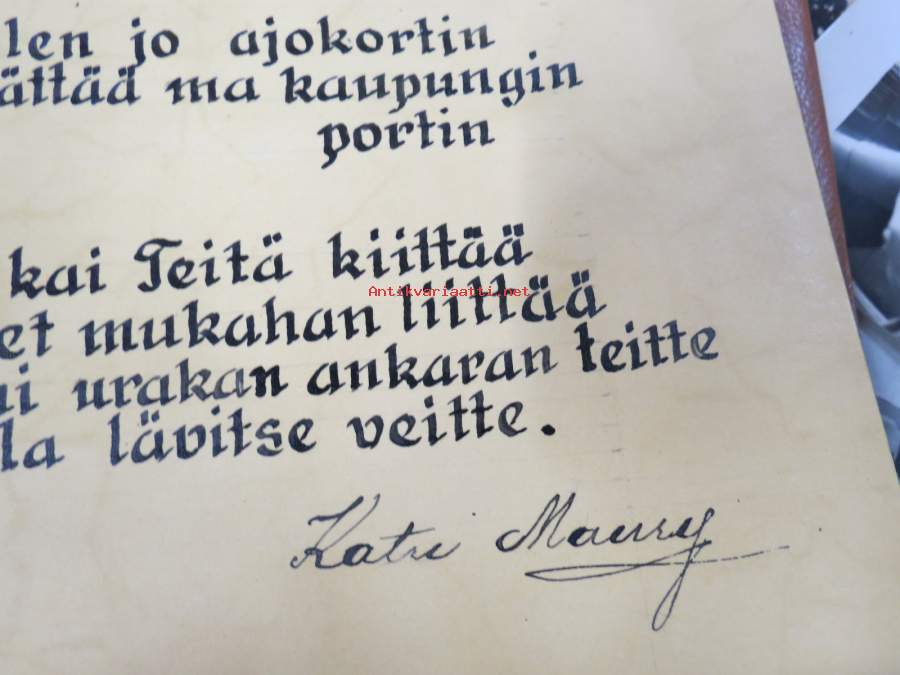 len jo ajokortin
ättää ma kaupungin
portin
kai Teitä kiittää
Antikvariaatti.net
et mukahan liittää
ui urakan ankaran teitte
la lävitse veitte.
Katri Maury